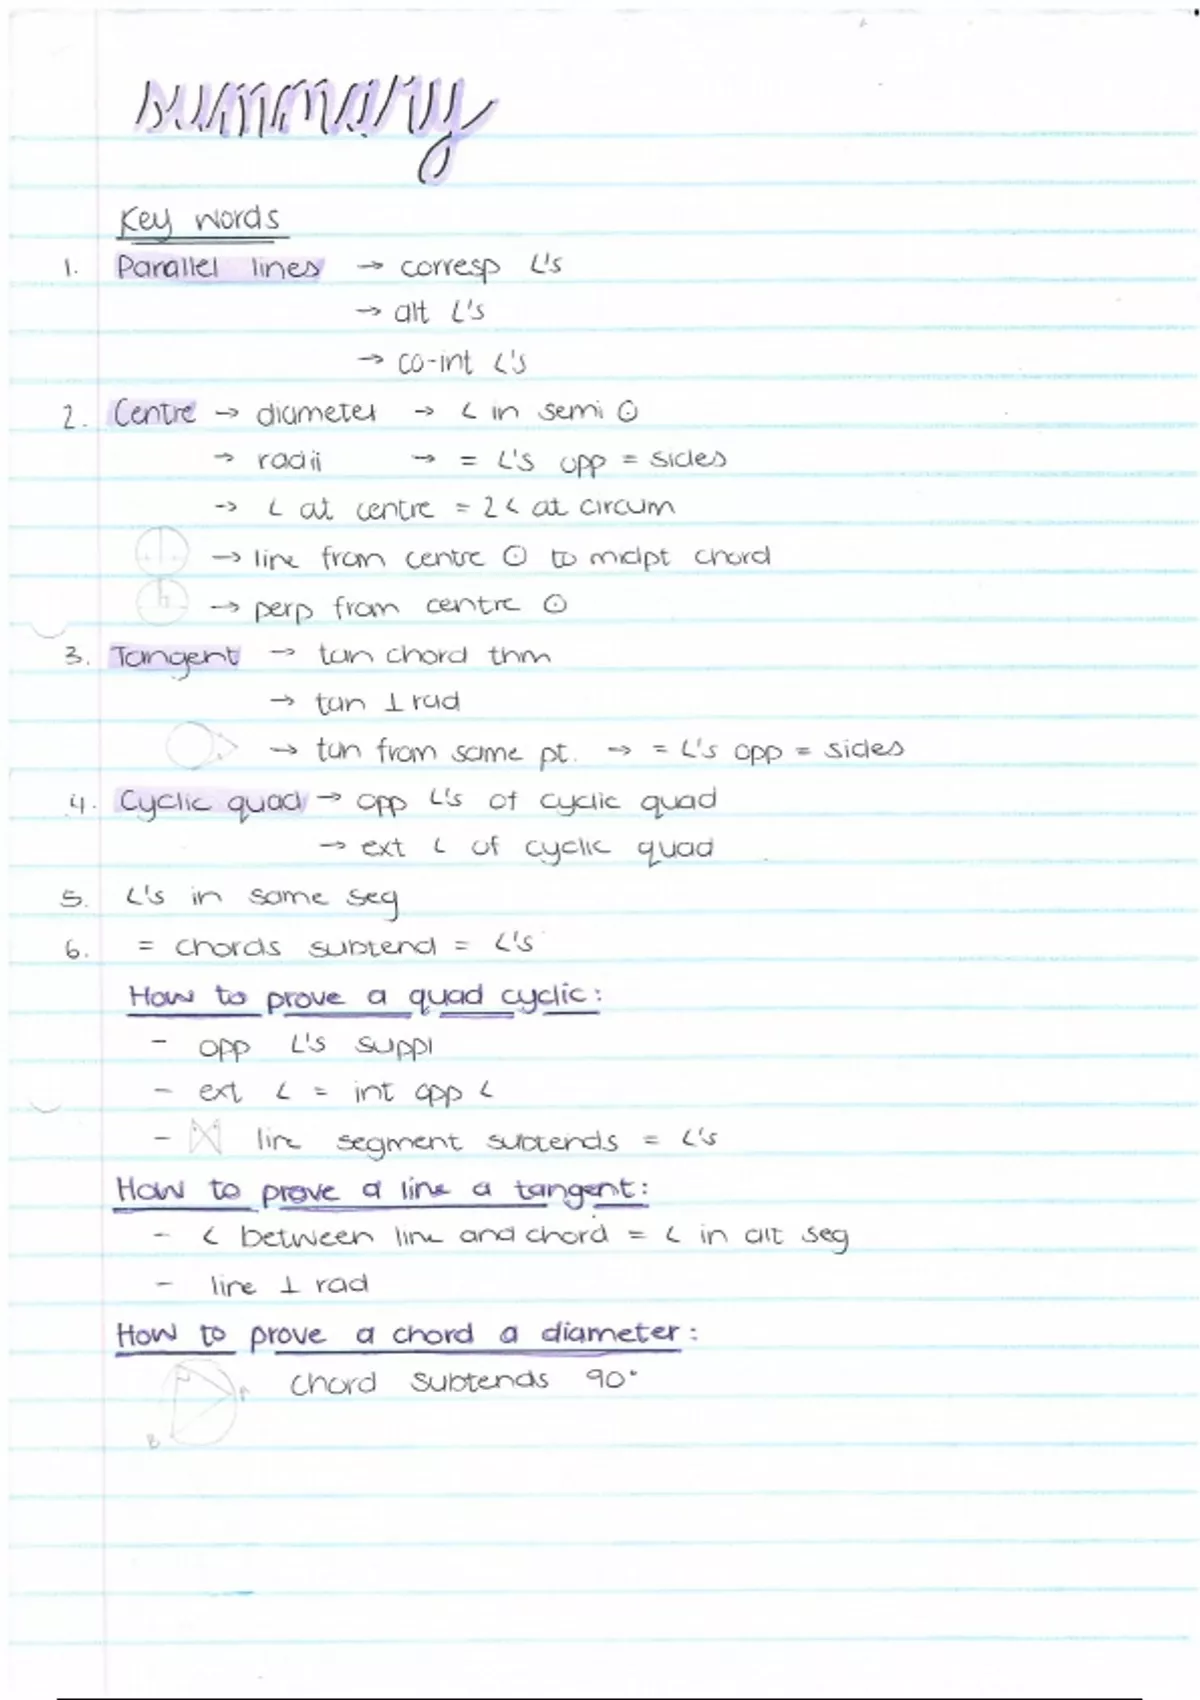 summary
Key words
1. Parallel lines → corresp ∠'s
→ alt ∠'s
→ co-int ∠'s
2. Centre → diameter → ∠ in semi ⊙
→ radii → = ∠'s opp = sides
→ ∠ at centre = 2∠ at circum
→ line from centre ⊙ to midpt chord
→ perp from centre ⊙
3. Tangent → tan chord thm
→ tan ⊥ rad
→ tan from same pt. → = ∠'s opp = sides
4. Cyclic quad → opp ∠'s of cyclic quad
→ ext ∠ of cyclic quad
5. ∠'s in same seg
6. = chords subtend = ∠'s
How to prove a quad cyclic:
- opp ∠'s suppl
- ext ∠ = int opp ∠
- line segment subtends = ∠'s
How to prove a line a tangent:
- ∠ between line and chord = ∠ in alt seg
- line ⊥ rad
How to prove a chord a diameter:
chord subtends 90°
B